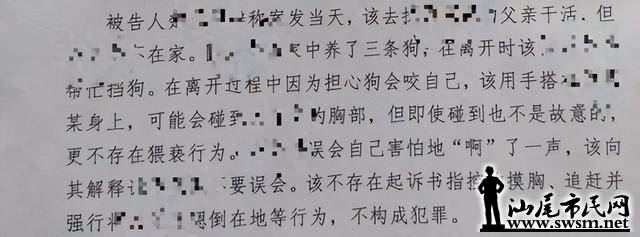 被告人 称案发当天，该去 父亲干活，但
在家。 中养了三条狗，在离开时该
帮忙挡狗。在离开过程中因为担心狗会咬自己，该用手搭
某身上，可能会碰到 的胸部，但即使碰到也不是故意的，
更不存在猥亵行为。 误会自己害怕地“啊”了一声，该向
其解释 不要误会。该不存在起诉书指控 摸胸、追赶并
强行将 摁倒在地等行为，不构成犯罪。
汕尾市民网
www.swsm.net